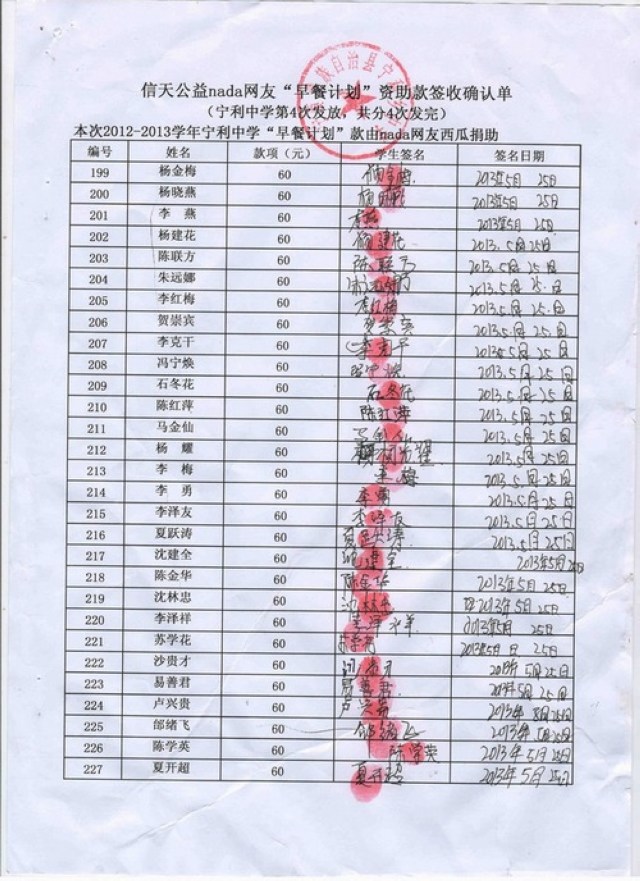 信天公益nada网友“早餐计划”资助款签收确认单
（宁利中学第4次发放，共分4次发完）
本次2012-2013学年宁利中学“早餐计划”款由nada网友西瓜捐助
编号 姓名 款项（元） 学生签名 签名日期
199 杨金梅 60 杨金梅 2013年5月25日
200 杨晓燕 60 2013年5月25日
201 李 燕 60 李燕 2013年5月25日
202 杨建花 60 杨建花 2013.5月25日
203 陈联方 60 陈联方 2013.5月25日
204 朱远娜 60 朱远娜 2013.5月25日
205 李红梅 60 李红梅 2013.5月25日
206 贺崇宾 60 贺崇宾 2013.5月25日
207 李克干 60 李克干 2013.5月25日
208 冯宁焕 60 2013.5月25日
209 石冬花 60 石冬花 2013.5月25日
210 陈红萍 60 陈红萍 2013.5月25日
211 马金仙 60 2013.5月25日
212 杨 耀 60 2013.5月25日
213 李 梅 60 李梅 2013.5月25日
214 李 勇 60 李勇 2013.5月25日
215 李泽友 60 李泽友 2013.5月25日
216 夏跃涛 60 2013.5月25日
217 沈建全 60 沈建全 2013年5月25日
218 陈金华 60 陈金华 2013年5月25日
219 沈林忠 60 沈林忠 2013年5月25日
220 李泽祥 60 李泽祥 2013年5月25日
221 苏学花 60 苏学花 2013年5日25日
222 沙贵才 60 2013年5月25日
223 易善君 60 易善君 2013年5月25日
224 卢兴贵 60 卢兴贵 2013年5月25日
225 邰绪飞 60 邰绪飞 2013年5月25日
226 陈学英 60 陈学英 2013年5月25日
227 夏开超 60 夏开超 2013年5月25日